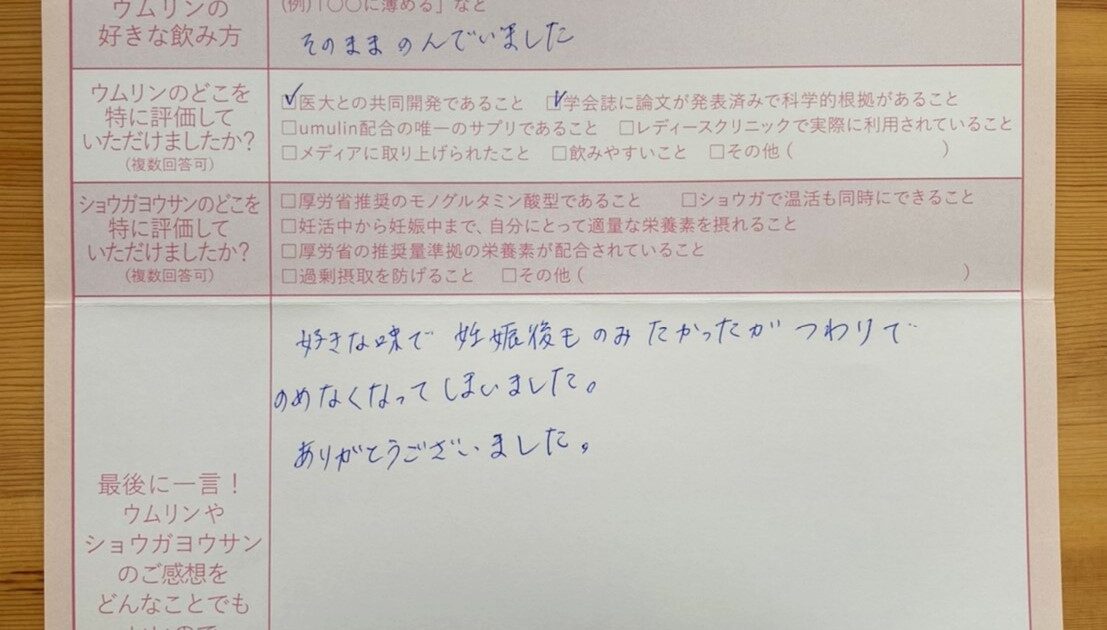 ウムリンの
好きな飲み方
(例)「〇〇に薄める」など
そのままのんでいました
ウムリンのどこを
特に評価して
いただけましたか?
(複数回答可)
☑医大との共同開発であること ☑学会誌に論文が発表済みで科学的根拠があること
□umulin配合の唯一のサプリであること □レディースクリニックで実際に利用されていること
□メディアに取り上げられたこと □飲みやすいこと □その他( )
ショウガヨウサンのどこを
特に評価して
いただけましたか?
(複数回答可)
□厚労省推奨のモノグルタミン酸型であること □ショウガで温活も同時にできること
□妊活中から妊娠中まで、自分にとって適量な栄養素を摂れること
□厚労省の推奨量準拠の栄養素が配合されていること
□過剰摂取を防げること □その他( )
最後に一言!
ウムリンや
ショウガヨウサン
のご感想を
どんなことでも
いいので
好きな味で 妊娠後ものみたかったが つわりで
のめなくなってしまいました。
ありがとうございました。